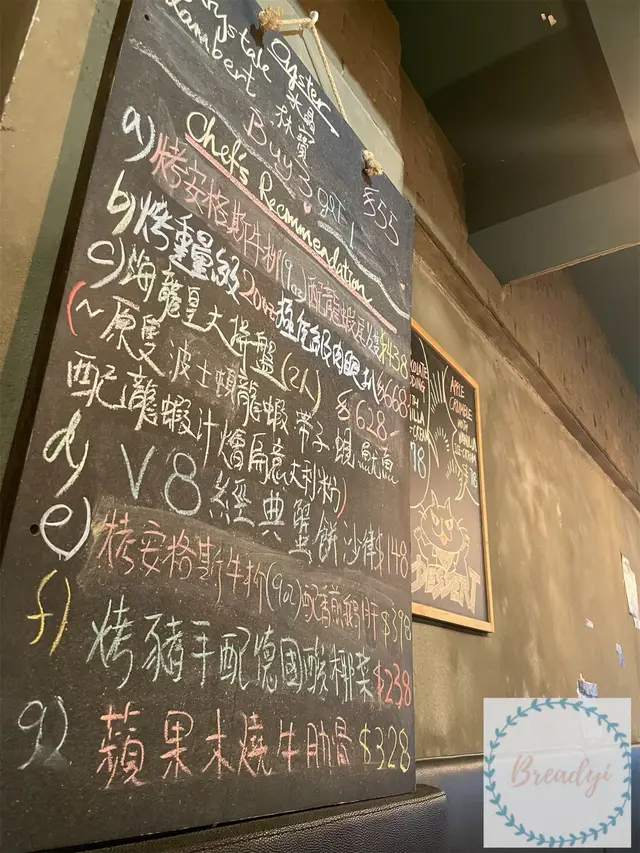 Oyster
Lambert
Buy 3 get 1 $55
Chef's Recommendation
a) 烤安格斯牛扒(9oz)配龍蝦尾 $438
b) 烤重量級 20oz 極佳級肉眼扒 $668
c) 海龍皇大拼盤(2人) $628
(~原隻波士頓龍蝦 帶子 蜆
配龍蝦汁燴扁意大利粉)
d) V8經典蟹餅沙律$148
e) 烤安格斯牛扒(9oz)配煎鵝肝$398
f) 烤豬手配德國酸椰菜$238
g) 蘋果木燒牛肋骨$328
APPLE
CRUMBLE
WITH
VANILLA
ICE-CREAM
DESSERT
Breadyi